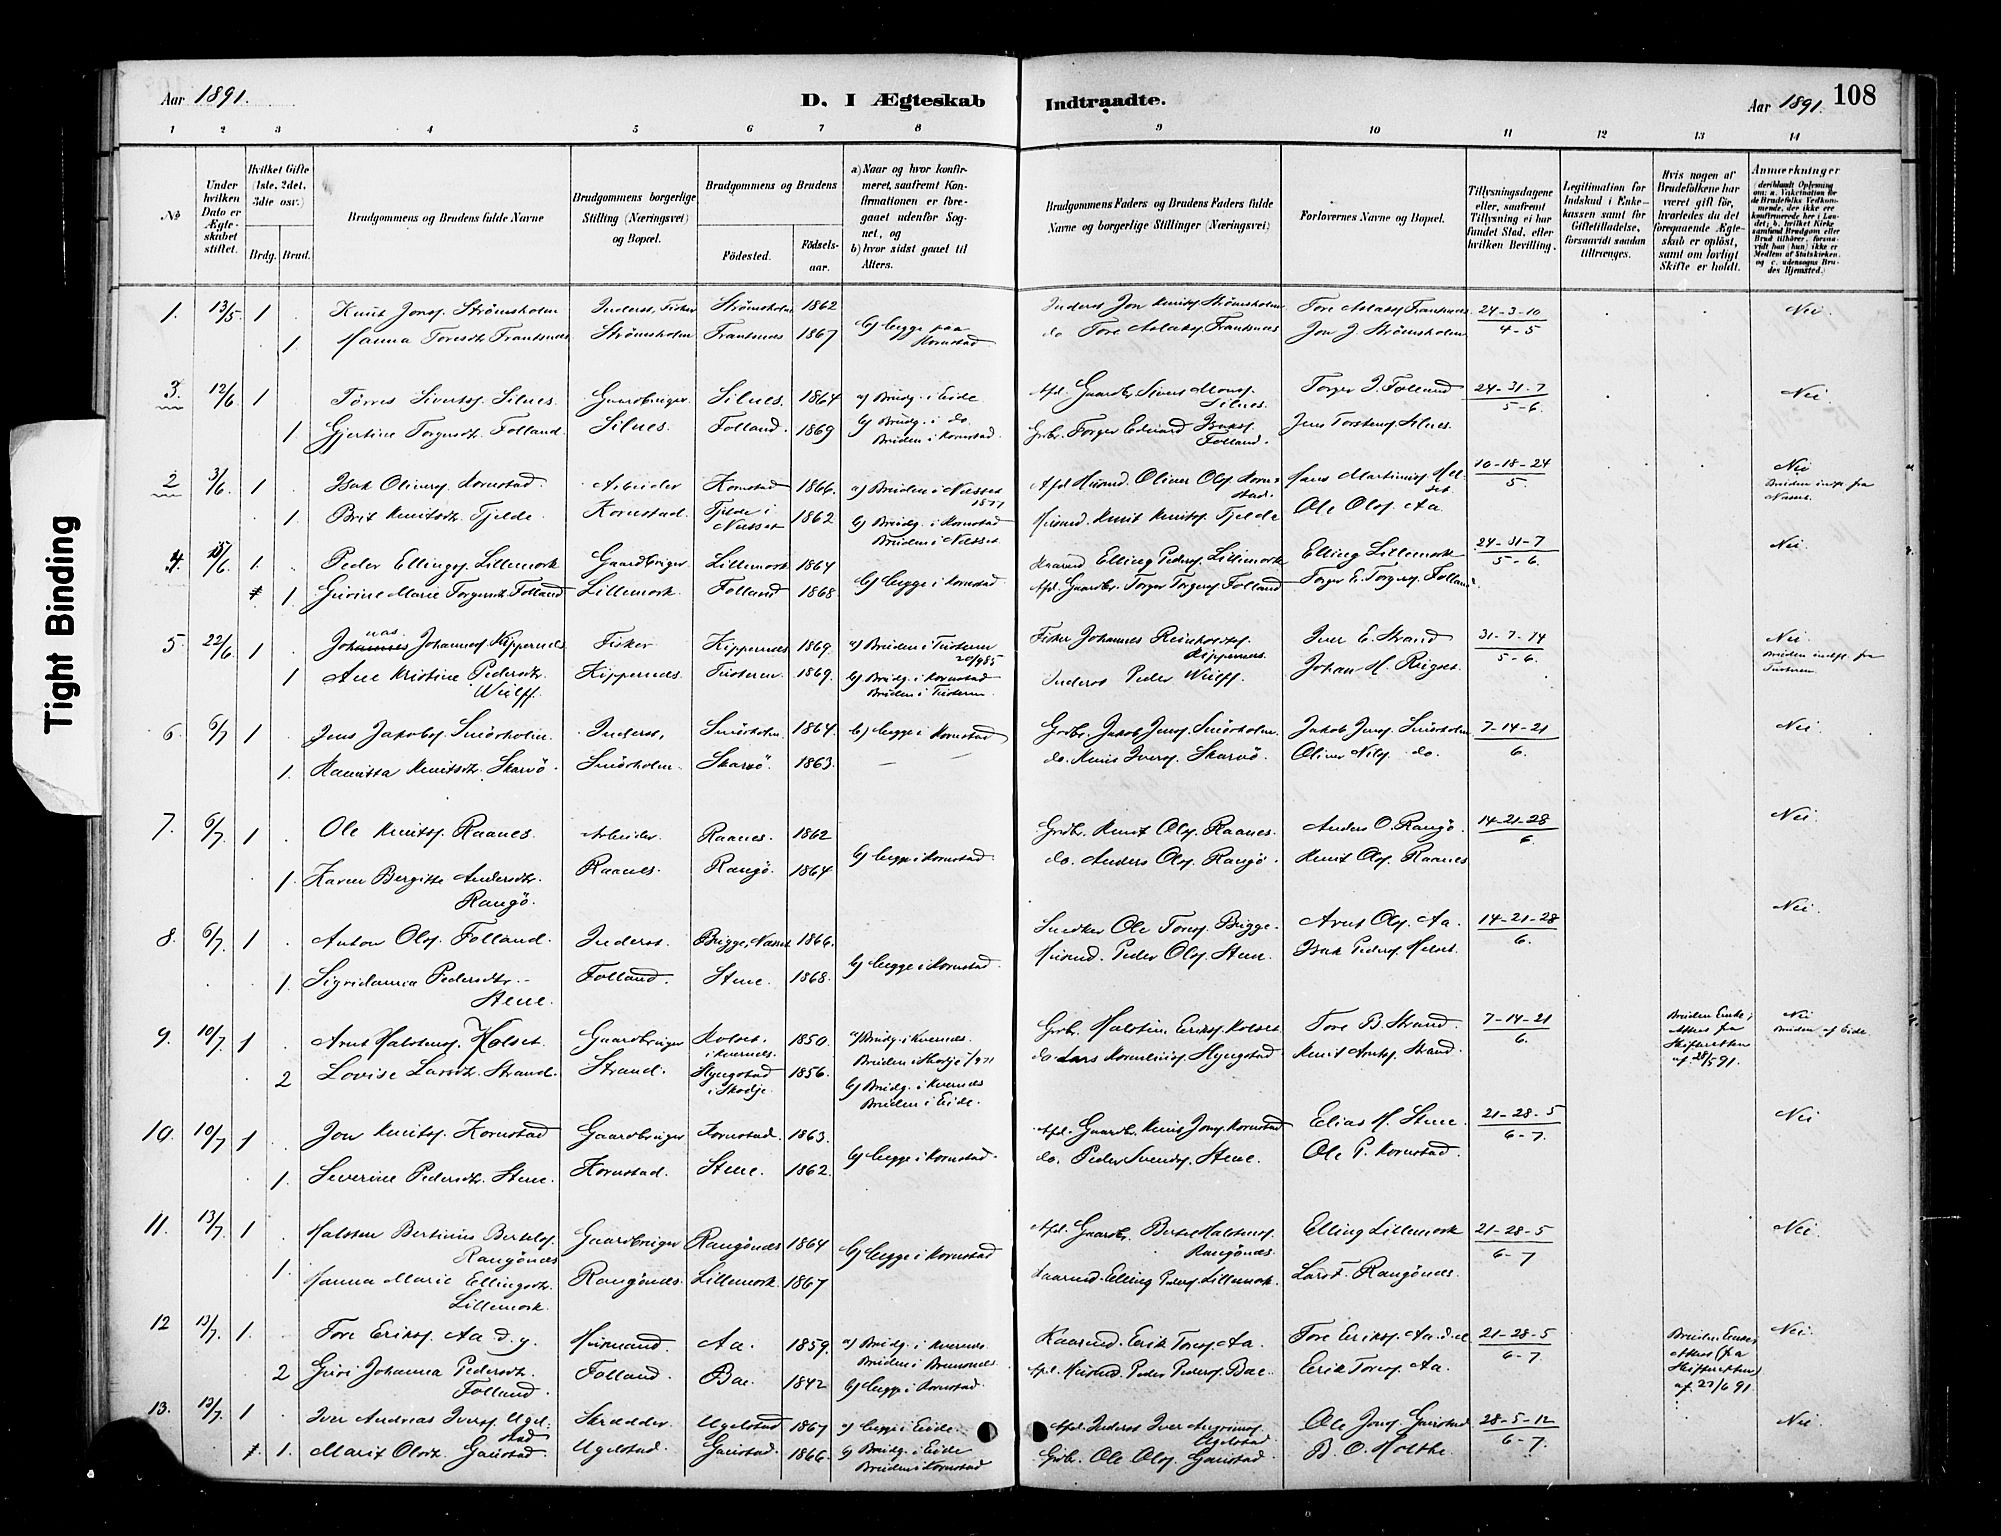 Aar 1891. D. I Ægteskab Indtraadte. Aar 1891. 108
1 2 3 4 5 6 7 8 9 10 11 12 13 14
№
Under hvilken Dato er Ægteskabet stiftet.
Hvilket Gifte (1ste, 2det, 3die osv.)
Brdg. Brud.
Brudgommens og Brudens fulde Navne
Brudgommens borgerlige Stilling (Næringsvei) og Bopæl.
Brudgommens og Brudens
Fødested.
Fødselsaar.
a) Naar og hvor konfirmeret, saafremt Konfirmationen er foregaaet udenfor Sognet, og
b) hvor sidst gaaet til Alters.
Brudgommens Faders og Brudens Faders fulde Navne og borgerlige Stillinger (Næringsvei)
Forlovernes Navne og Bopæl.
Tillysningsdagene eller, saafremt Tillysning ei har fundet Sted, efter hvilken Bevilling.
Legitimation for Indskud i Enkekassen samt for Giftetilladelse, forsaavidt saadan tiltrænges.
Hvis nogen af Brudefolkene har været gift før, hvorledes da det foregaaende Ægteskab er opløst, samt om lovligt Skifte er holdt.
Anmærkninger
Tight Binding
1. 13/5 1 Knut Jonss. Strømsholm Inderst, Fisker Strømsholm 1862 Inderst Jon Knuts. Strømsholm Tore Aslaks. Frantsnes 24-3-10 Nei
1. Hanna Toresdtr. Frantsnes Strømsholm Frantsnes 1867 b) begge paa Kornstad do Tore Aslaks. Frantsnes Jon J. Strømsholm 4-5
3. 12/6 1 Tørres Siverts. Silnes. Gaardbruger Silnes. 1864 a) Brudg. i Eide Afd. Gaardbr. Sivert Mons. Silnes. Torger I. Folland 24-31-7 Nei
1 Gjertine Torgersdtr. Folland. Silnes. Folland. 1869 b) Brudg. i do. Bruden i Kornstad. Grbr. Torger Edvard Isaks. Folland. Jens Torstens. Silnes. 5-6.
2 3/6. 1 Isak Olivers. Kornstad. Arbeider Kornstad 1866. a) Bruden i Nesset 1877 Afd. Husmd. Oliver Ols. Kornstad. Hans Martinus. Melset 10-18-24 Nei Bruden indf. fra Nesset.
1. Brit Knutsdtr. Tjelde Kornstad. Tjelde i Nesset 1862 b) Brudg. i Kornstad Bruden i Nesset Husmd. Knut Knuts. Tjelde Ole Ols. Aa 5.
4. 15/6 1. Peder Ellings. Lillemork Gaardbruger Lillemork 1864 Kaarmd Elling Peders. Lillemork Elling Lillemork 24-31-7 Nei.
1. Gurine Marie Torgersdtr. Folland Lillemork. Folland 1868. b) begge i Kornstad Afd. Gaardbr. Torger Torgers. Folland Torger E. Torgers. Folland. 5-6.
5 22/6 1 Jonas Johannes. Kippernes Fisker Kippernes 1869. a) Bruden i Tusteren 20/985 Fisker Johannes Reinholts. Kippernes. Iver E. Strand 31-7-14 Nei Bruden indf. fra Tusteren
1 Ane Kristine Pedersdtr. Wulff. Kippernes. Tusteren 1869. b) Brudg. i Kornstad Bruden i Tusteren. Inderst Peder Wulff Johan H. Rugset. 5-6.
6. 6/7 1 Jens Jakobs. Smørholm. Inderst, Smørholm. 1864. b) begge i Kornstad Grdbr. Jakob Jens. Smørholm. Jakob Jens. Smørholm 7-14-21 Nei
1. Kanutta Knutsdtr. Skarvö. Smørholm. Skarvö. 1863. do. Knut Ivers. Skarvö. Oliver Nils. do. 6.
7. 6/7 1 Ole Knuts. Raanes. Arbeider. Raanes. 1862 Grdbr. Knut Ols. Raanes. Anders O. Rangö. 14-21-28 Nei.
1. Karen Bergitte Andersdtr. Rangö. Raanes. Rangö. 1864 b) begge i Kornstad. do. Anders Ols. Rangö. Knut Ols. Raanes 6.
8. 6/7. 1 Anton Ols. Folland. Inderst. Brigge, Nesset 1866. Snedker Ole Tores. Brigge. Arnt Ols. Aa. 14-21-28 Nei.
1. Sigridanna Pedersdtr. Stene. Folland. Stene. 1868. b) begge i Kornstad. Husmd. Peder Ols. Stene. Isak Peders. Melset. 6.
9. 10/7 1 Arnt Halstens. Holset. Gaardbruger Holset. i Kvernes. 1850. a) Brudg. i Kvernes. Bruden i Skodje Grbr. Halsten Eriks. Holset Tore B. Strand. 7-14-21 Bruden Enke, Attest fra Skifteretten af 28/5 91. Nei Bruden af Eide
2 Lovise Larsdtr. Strand. Strand. Slyngstad i Skodje 1856. b) Brudg. i Kvernes Bruden i Eide. do. Lars Kornelius. Slyngstad Knut Arnts. Strand. 6.
10. 10/7 1 Jon Knuts. Kornstad Gaardbruger Kornstad. 1863. Afd. Gaardbr. Knut Jons. Kornstad Elias H. Stene. 21-28-5 Nei
1. Severine Pedersdtr. Stene. Kornstad. Stene. 1862. b) begge i Kornstad. do. Peder Svends. Stene. Ole P. Kornstad. 6-7.
11. 13/7 1 Halsten Bertinius Bertels. Rangönes Gaardbruger Rangönes 1864 b) begge i Kornstad Afd. Gaardbr. Bertel Halstens. Rangönes. Elling Lillemork 21-28-5 Nei
1. Hanna Marie Ellingsdtr. Lillemork. Rangönes. Lillemork. 1867 Kaarmd. Elling Peders. Lillemork. Lars F. Rangönes. 6-7
12 13/7. 1. Tore Eriks. Aa d.y. Husmand. Aa. 1859. a) Brudg. i Kvernes Bruden i Bremsnes. Kaarmd. Erik Tores. Aa. Tore Eriks. Aa d.æ 21-28-5 Bruden Enke, Attest fra Skifteretten af 27/6 91. Nei.
2 Guri Johanna Pedersdtr. Folland. Folland. Bae. 1842 b) begge i Kornstad. Afd. Husmd. Peder Peders. Bae. Erik Tores. Aa. 6-7.
13. 13/7. 1 Iver Andreas Ivers. Ugelstad Skrædder. Ugelstad 1867 a) begge i Eide. Afd. Inderst Iver Ugelstad Ole Jons. Gaustad 28-5-12 Nei
1. Marit Olsdtr. Gaustad. Ugelstad. Gaustad. 1866. b) Brudg. i Eide Bruden i Kornstad Grbr. Ole Ols. Gaustad. B. O. Holthe. 6-7.